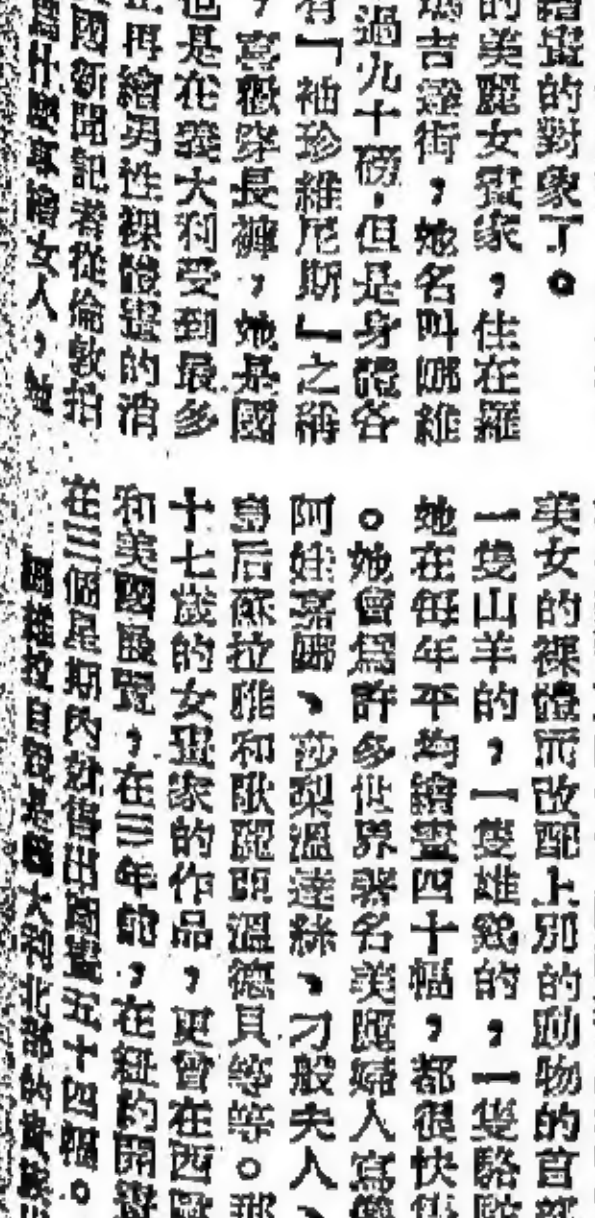 繪畫的對象了。
的美麗女畫家，住在羅
瑪吉達街，她名叫娜維
過九十磅，但是身體各
有「袖珍維尼斯」之稱
，喜歡穿長褲，她是國
也是在義大利受到最多
再繪男性裸體畫的消
國新聞記者從倫敦拍
爲什麽專繪女人，她
美女的裸體而改配上別的動物的首
一隻山羊的，一隻雄鷄的，一隻駱駝
她在每年平均繪畫四十幅，都很快售
。她曾爲許多世界著名美麗婦人寫像
阿娃嘉娜、莎梨溫達絲、刁般夫人、
皇后蘇拉雅和歌麗亞溫德貝等等。那
十七歲的女畫家的作品，更曾在西歐
和美國展覽，在三年前，在紐約開畫
在三個星期內就售出圖畫五十四幅。
自己是義大利北部的貴族